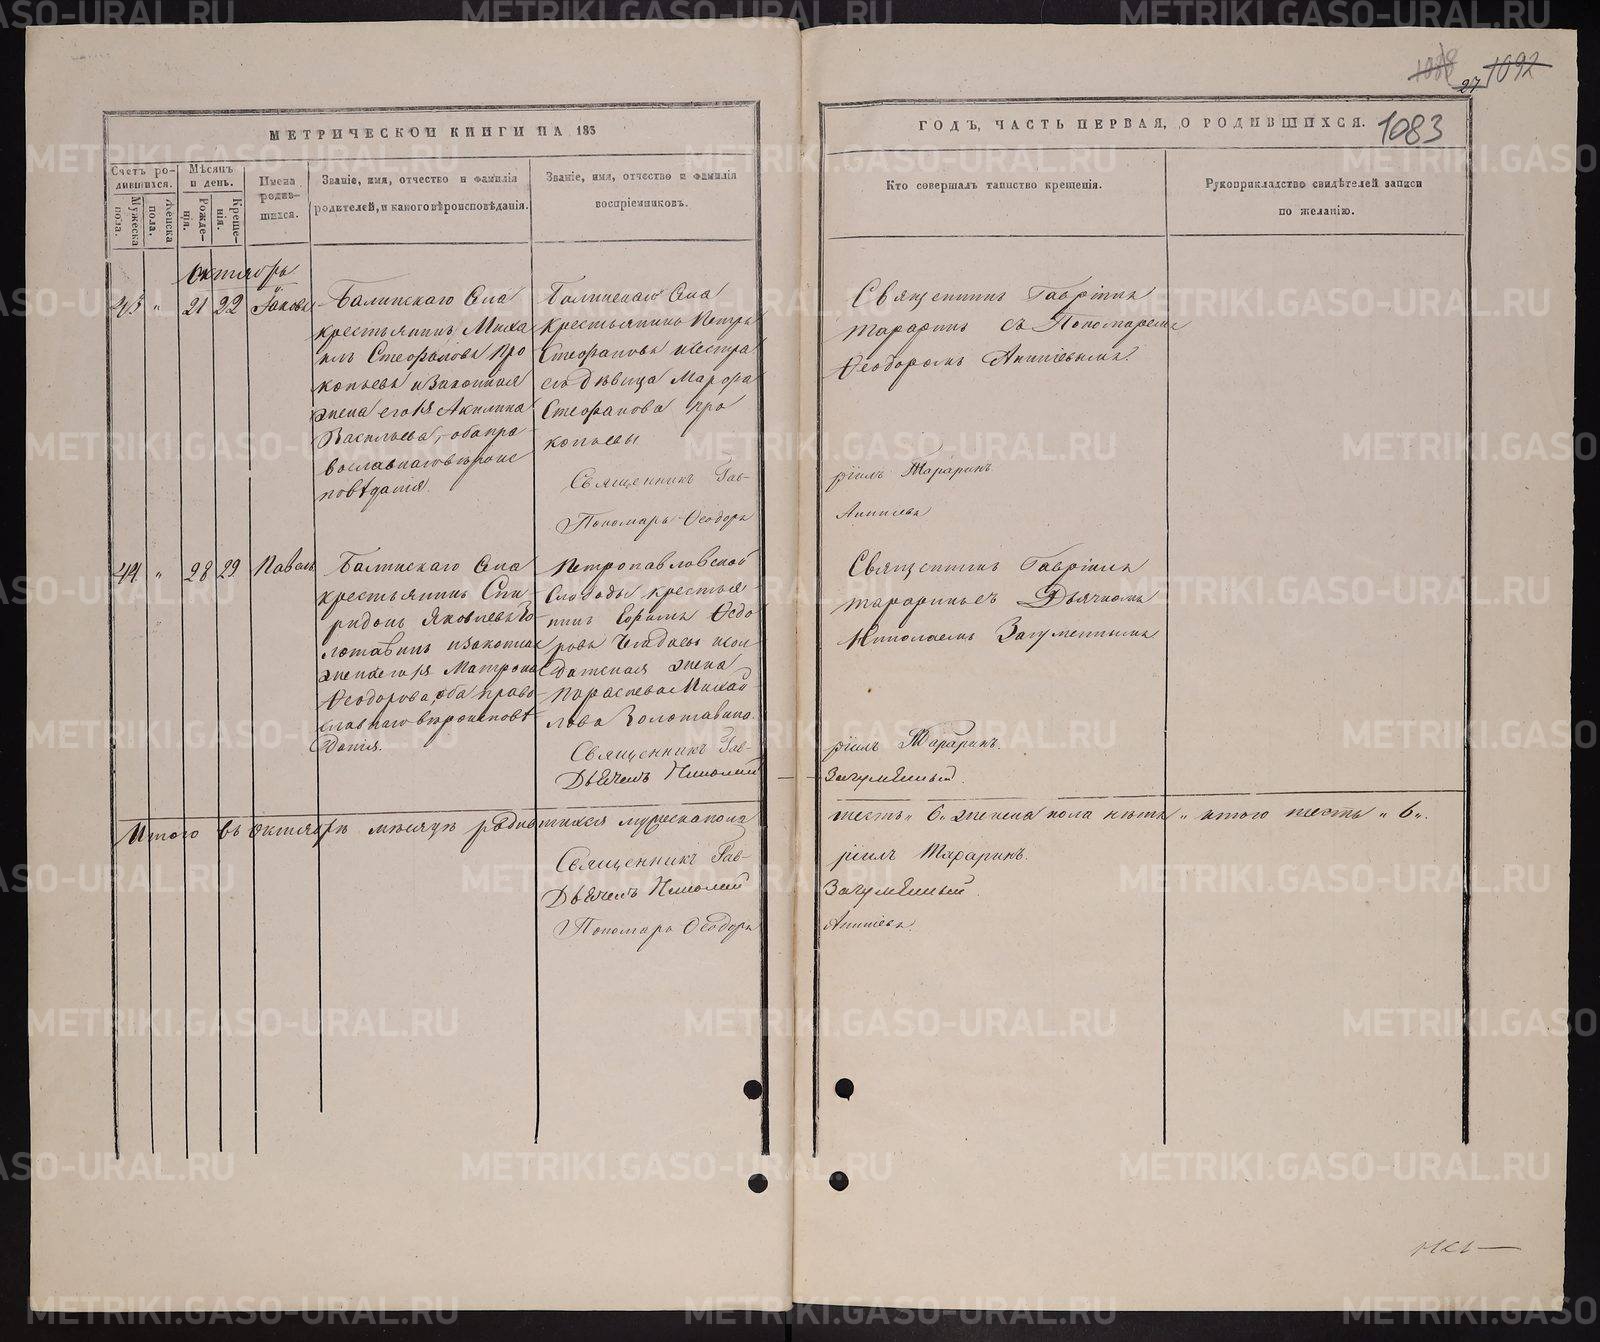 1092
27
МЕТРИЧЕСКОЙ КНИГИ НА 185
ГОДЪ, ЧАСТЬ ПЕРВАЯ, О РОДИВШИХСЯ.
1083
Счетъ ро-
дившихся.
Мужеска
пола.
Женска
пола.
Мѣсяцъ
и день.
Рожде-
нія.
Креще-
нія.
Имена
родив-
шихся.
Званіе, имя, отчество и фамилія
родителей, и какого вѣроисповѣданія.
Званіе, имя, отчество и фамилія
воспріемниковъ.
Кто совершалъ таинство крещенія.
Рукоприкладство свидѣтелей записи
по желанію.
Октябрь
43 " 21 22 Іаковъ
села
крестьянинъ Миха
илъ Стефановъ Про
копьевъ и законная
жена его Акилина
Васильева, оба пра
вославнаго вѣроис
повѣданія.
села
крестьянинъ Петръ
Стефановъ и сестра
его дѣвица Марфа
Стефанова Про
копьевы
Священникъ Гав-
Пономарь Ѳеодоръ
Священникъ Гавріилъ
Тараринъ съ Пономаремъ
Ѳеодоромъ
ріилъ Тараринъ
44 " 28 29 Павелъ
села
крестьянинъ Спи
ридонъ Яковлевъ Зо
лотавинъ и законная
жена его Матрона
Ѳеодорова, оба право
славнаго вѣроисповѣ
данія.
Петропавловской
Слободы крестья
нинъ Ефимъ Ѳедо
ровъ и сол
датская жена
Параскева Михай
лова Золотавина.
Священникъ Гав-
Дьячекъ Николай
Священникъ Гавріилъ
Тараринъ съ Дьячкомъ
Николаемъ Загуменнымъ
ріилъ Тараринъ.
Загуменный.
Итого въ октябрѣ месяцѣ родившихся мужеска пола
шесть „6„ женска пола нѣтъ „ итого шесть „6„.
Священникъ Гав-
ріилъ Тараринъ.
Дьячекъ Николай
Загуменный
Пономарь Ѳеодоръ
METRIKI.GASO-URAL.RU